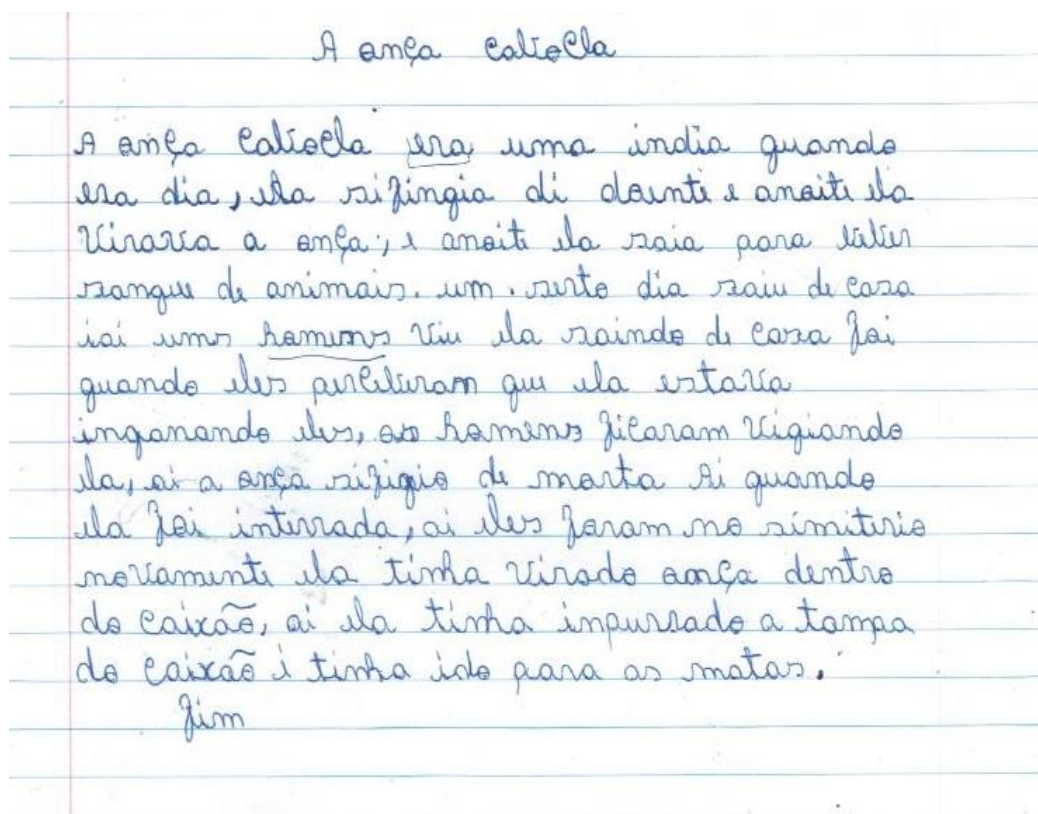 A onça cabiocla
A onça cabiocla era uma india quando
era dia, ela sifingia di doenti e anoiti ela
virava a onça; e anoiti ela saia para beber
sangue de animais. um. serto dia saiu de casa
iai ums homens viu ela saindo de casa foi
quando eles perceberam que ela estava
inganando eles, os homens ficaram vigiando
ela, ai a onça sifigio de morta Ai quando
ela foi interrada, ai eles foram no simiterio
novamenti ela tinha virado onça dentro
do caixão, ai ela tinha inpurrado a tampa
do caixão i tinha ido para as matas.
fim